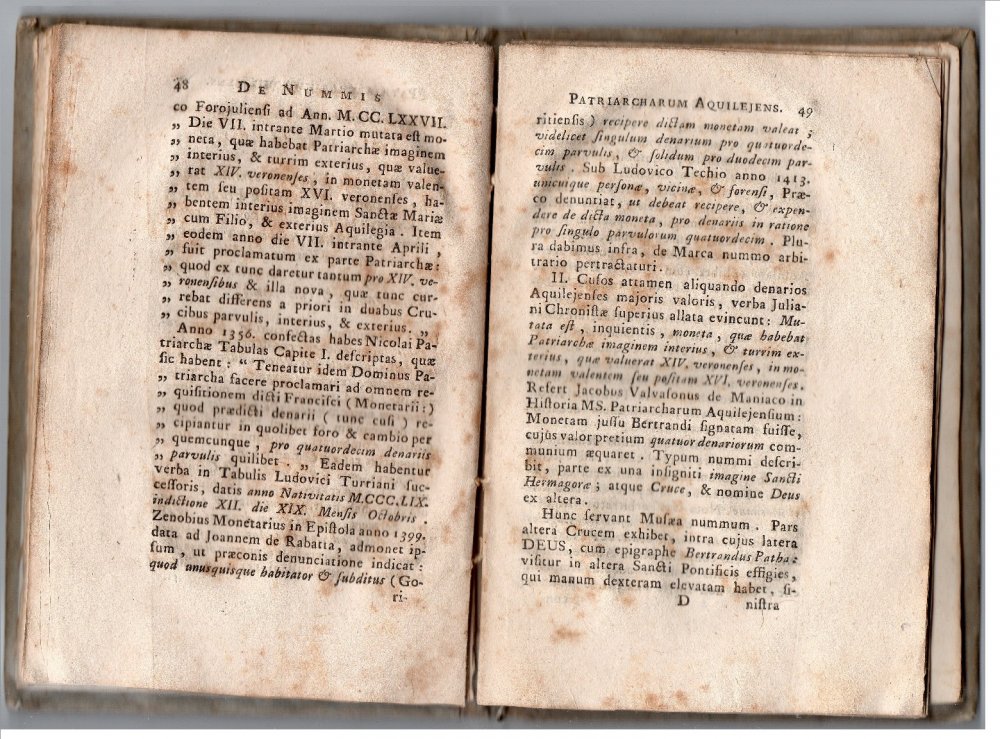 48 DE NUMMIS
co Forojuliensi ad Ann. M. CC. LXXVII.
„ Die VII. intrante Martio mutata est mo-
„ neta, quæ habebat Patriarchæ imaginem
„ interius, & turrim exterius, quæ value-
„ rat XIV. veronenses, in monetam valen-
„ tem seu positam XVI. veronenses, ha-
„ bentem interius imaginem Sanctæ Mariæ
„ cum Filio, & exterius Aquilegia. Item
„ eodem anno die VII. intrante Aprili,
„ fuit proclamatum ex parte Patriarchæ:
„ quod ex tunc daretur tantum pro XIV. ve-
„ ronensibus & illa nova, quæ tunc cur-
„ rebat differens a priori in duabus Cru-
„ cibus parvulis, interius, & exterius. „
Anno 1356. confectas habes Nicolai Pa-
triarchæ Tabulas Capite I. descriptas, quæ
sic habent: “ Teneatur idem Dominus Pa-
„ triarcha facere proclamari ad omnem re-
„ quisitionem dicti Francisci (Monetarii:)
„ quod prædicti denarii (tunc cusi) re-
„ cipiantur in quolibet foro & cambio per
„ quemcunque, pro quatuordecim denariis
„ parvulis quilibet. „ Eadem habentur
verba in Tabulis Ludovici Turriani suc-
cessoris, datis anno Nativitatis M.CCC.LIX.
indictione XII. die XIX. Mensis Octobris.
Zenobius Monetarius in Epistola anno 1399.
data ad Joannem de Rabatta, admonet ip-
sum, ut præconis denunciatione indicat:
quod unusquisque habitator & subditus (Go-
ri-
PATRIARCHARUM AQUILEJENS. 49
ritiensis) recipere dictam monetam valeat;
videlicet singulum denarium pro quatuorde-
cim parvulis, & solidum pro duodecim par-
vulis. Sub Ludovico Techio anno 1413.
unicuique personæ, vicinæ, & forensi, Præ-
co denuntiat, ut debeat recipere, & expen-
dere de dicta moneta, pro denariis in ratione
pro singulo parvulorum quatuordecim. Plu-
ra dabimus infra, de Marca nummo arbi-
trario pertractaturi.
II. Cusos attamen aliquando denarios
Aquilejenses majoris valoris, verba Julia-
ni Chronistæ superius allata evincunt: Mu-
tata est, inquientis, moneta, quæ habebat
Patriarchæ imaginem interius, & turrim ex-
terius, quæ valuerat XIV. veronenses, in mo-
netam valentem seu positam XVI. veronenses.
Refert Jacobus Valvasonus de Maniaco in
Historia MS. Patriarcharum Aquilejensium:
Monetam jussu Bertrandi signatam fuisse,
cujus valor pretium quatuor denariorum com-
munium æquaret. Typum nummi descri-
bit, parte ex una insigniti imagine Sancti
Hermagoræ; atque Cruce, & nomine Deus
ex altera.
Hunc servant Musæa nummum. Pars
altera Crucem exhibet, intra cujus latera
DEUS, cum epigraphe Bertrandus Patha:
visitur in altera Sancti Pontificis effigies,
qui manum dexteram elevatam habet, si-
D nistra